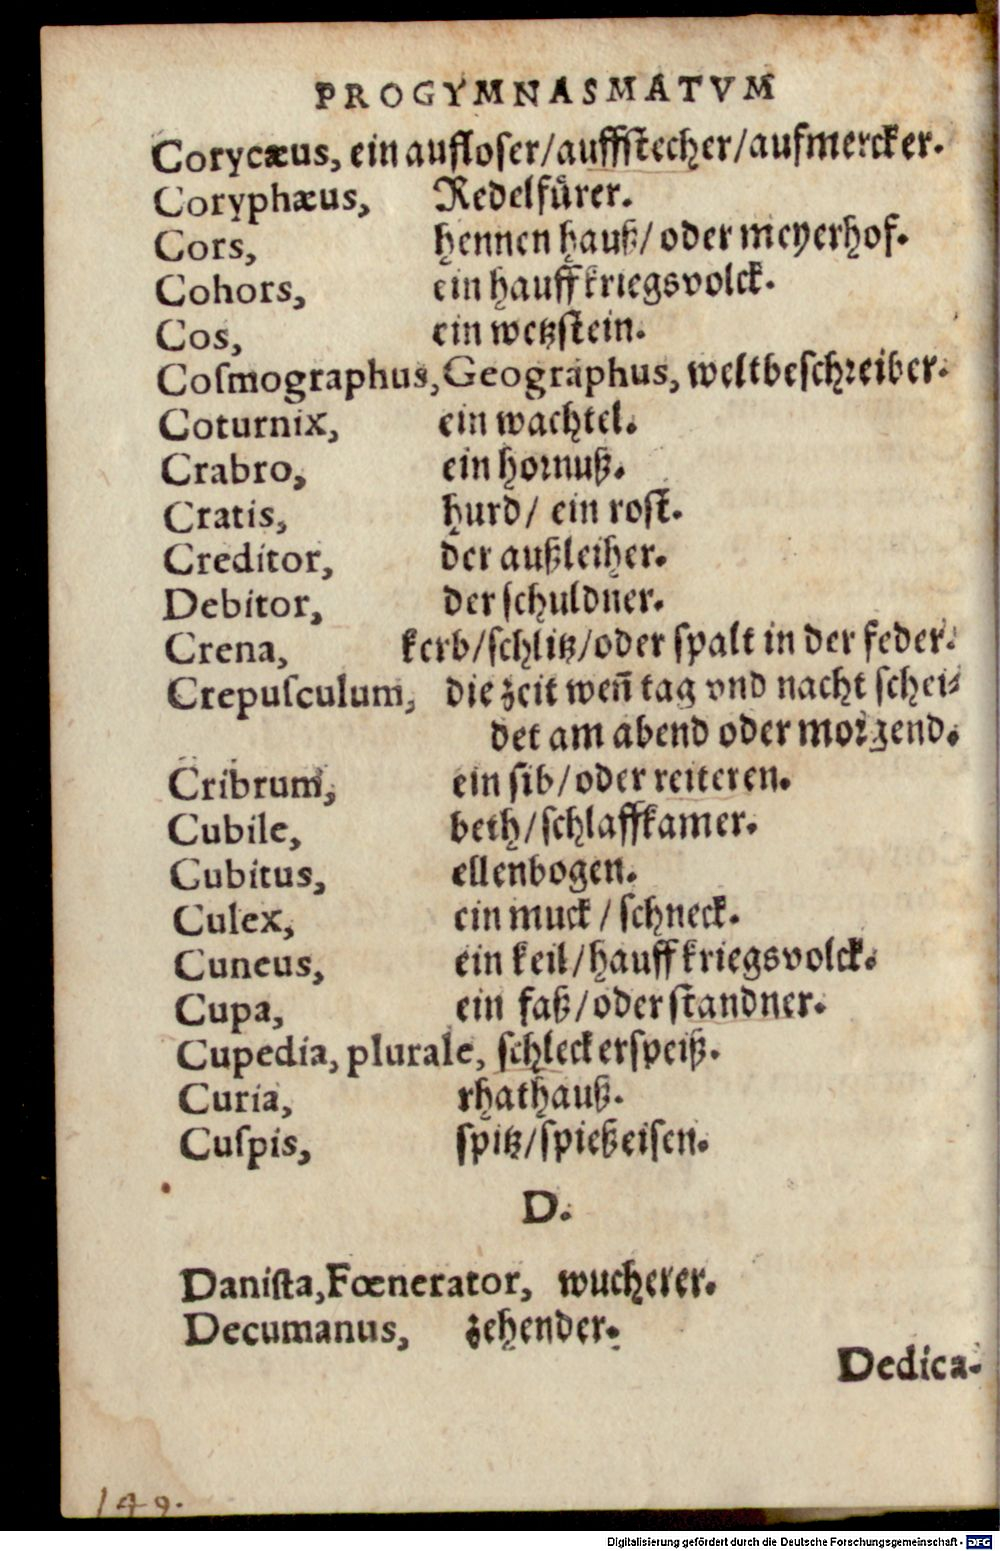 PROGYMNASMATVM
Corycæus, ein aufloser/auffstecher/aufmercker.
Coryphæus, Redelfürer.
Cors, hennen hauß/ oder meyerhof.
Cohors, ein hauff kriegsvolck.
Cos, ein wetzstein.
Coſmographus, Geographus, weltbeschreiber.
Coturnix, ein wachtel.
Crabro, ein hornuß.
Cratis, hurd/ ein rost.
Creditor, der außleiher.
Debitor, der schuldner.
Crena, kerb/schlitz/oder spalt in der feder.
Crepuſculum, die zeit weñ tag vnd nacht schei-
det am abend oder morgend.
Cribrum, ein sib/oder reiteren.
Cubile, beth/schlaffkamer.
Cubitus, ellenbogen.
Culex, ein muck / schneck.
Cuneus, ein keil/hauff kriegsvolck.
Cupa, ein faß/oder standner.
Cupedia, plurale, schleckerspeiß.
Curia, rhathauß.
Cuſpis, spitz/spießeisen.
D.
Daniſta, Fœnerator, wucherer.
Decumanus, zehender.
Dedica-
149.
Digitalisierung gefördert durch die Deutsche Forschungsgemeinschaft - DFG